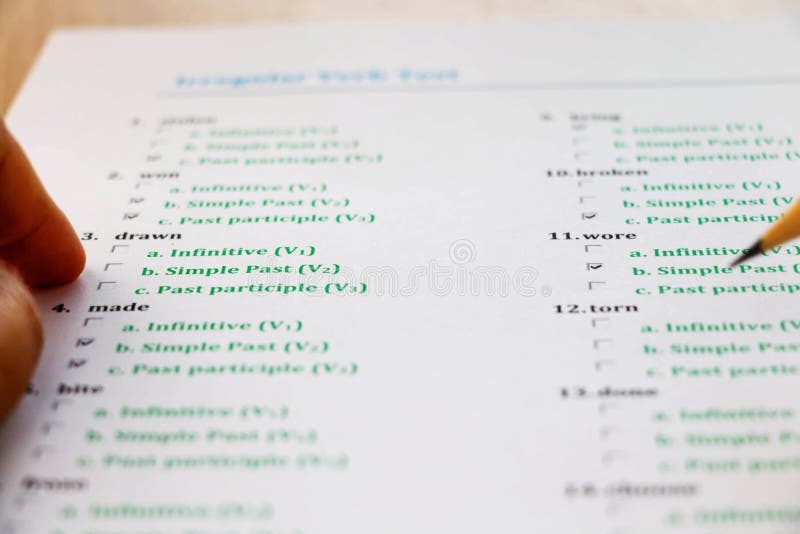 Irregular Verb Test
1. stolen
a. Infinitive (V₁)
b. Simple Past (V₂)
c. Past participle (V₃)
2. won
a. Infinitive (V₁)
b. Simple Past (V₂)
c. Past participle (V₃)
3. drawn
a. Infinitive (V₁)
b. Simple Past (V₂)
c. Past participle (V₃)
4. made
a. Infinitive (V₁)
b. Simple Past (V₂)
c. Past participle (V₃)
bite
a. Infinitive (V₁)
b. Simple Past (V₂)
c. Past participle (V₃)
a. Infinitive (V₁)
b. Simple Past (V₂)
9. bring
a. Infinitive (V₁)
b. Simple Past (V₂)
c. Past participle (V₃)
10.broken
a. Infinitive (V₁)
b. Simple Past (V₂)
c. Past participle
11.wore
a. Infinitive (V₁)
b. Simple Past
c. Past participle
12.torn
a. Infinitive (V
b. Simple Past
c. Past partic
13.done
a. Infinitive
b. Simple P
c. Past par
14.choose
a. Infin
b. Simp
dreamstime